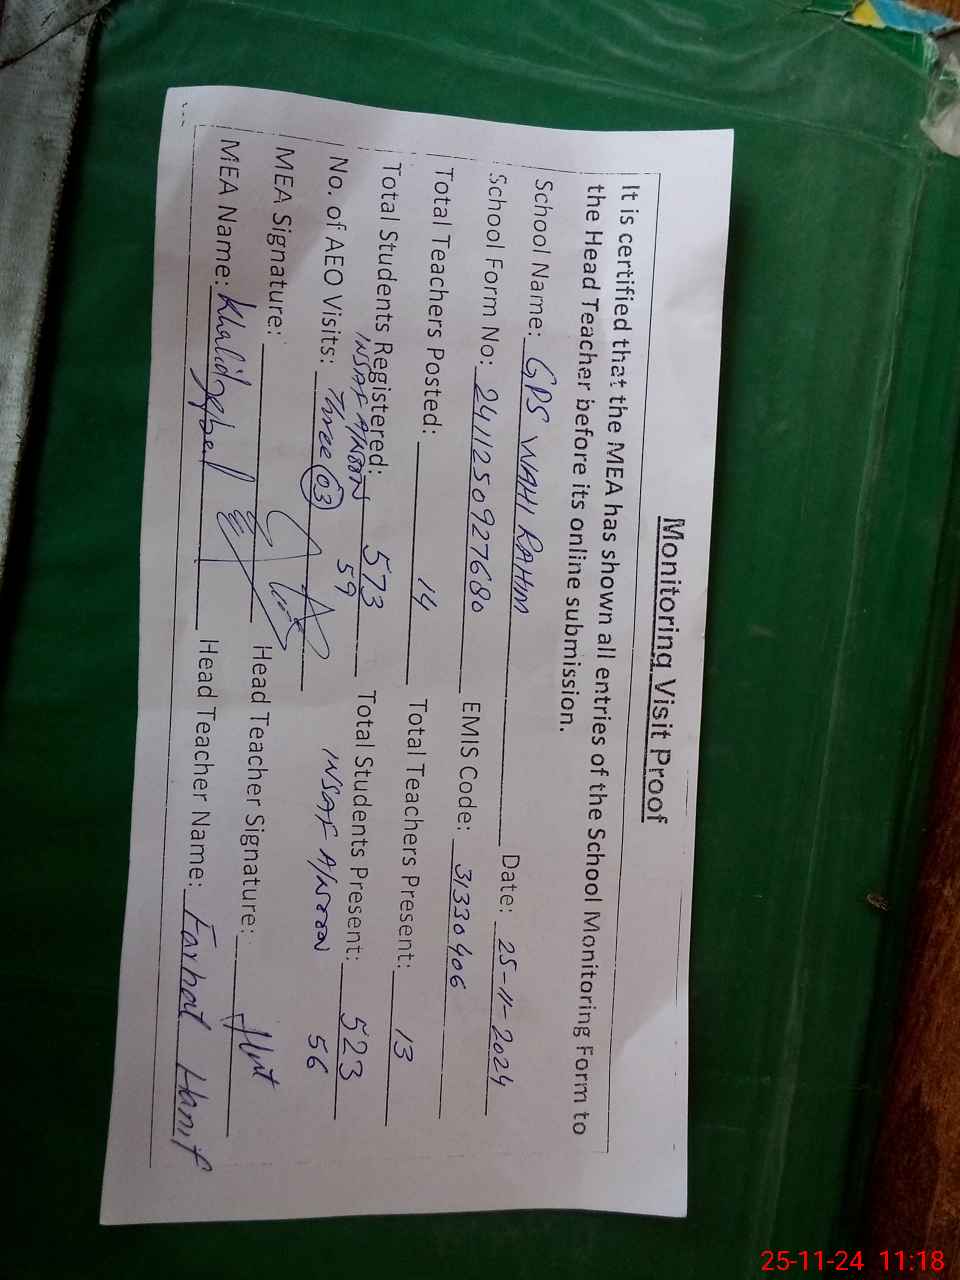 Monitoring Visit Proof
It is certified that the MEA has shown all entries of the School Monitoring Form to
the Head Teacher before its online submission.
School Name: GPS WAHI RAHIM Date: 25-11-2024
School Form No: 241125092768 0 EMIS Code: 31330406
Total Teachers Posted: 14 Total Teachers Present: 13
Total Students Registered: 573 Total Students Present: 523
INSAF A/NOON 59 INSAF A/NOON 56
No. of AEO Visits: Three 03
MEA Signature: Head Teacher Signature:
MEA Name: Khalid Iqbal Head Teacher Name: Farhat Hanif
25-11-24 11:18